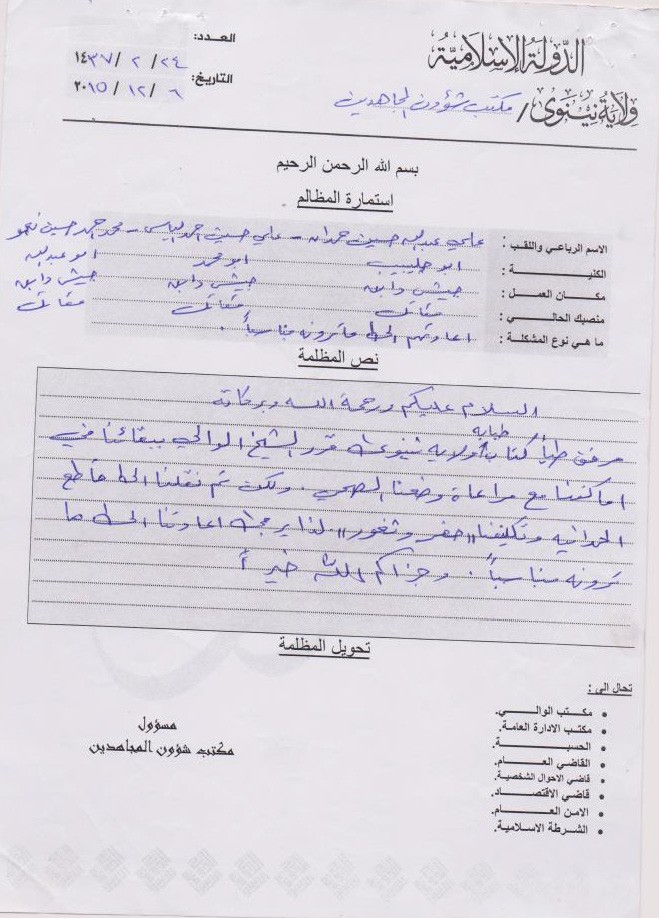 الدولة الإسلامية
ولاية نينوى / مكتب شؤون المجاهدين
العدد:
٢٤ / ٢ / ١٤٣٧
التاريخ:
٦ / ١٢ / ٢٠١٥
بسم الله الرحمن الرحيم
استمارة المظالم
الاسم الرباعي واللقب : علي عبدالله حسين حمدان - علي حسين احمد الياس - محمد احمد حسين
الكنية : ابو جليبيب ابو محمد ابو عبدالله
مكان العمل : جيش دابق جيش دابق جيش دابق
منصبك الحالي : مقاتل مقاتل مقاتل
ما هي نوع المشكلة : اعادتهم الى ما ترونه مناسباً .
نص المظلمة
السلام عليكم ورحمة الله وبركاته
طبابه
مرفق طياً كتاب ولايه نينوى قرر الشيخ الوالي ببقائنا في
اماكننا مع مراعاة وضعنا الصحي . ولكن تم نقلنا الى قاطع
الحمدانيه وتكليفنا "حفر وثغور" لذا يرجى اعادتنا الى ما
ترونه مناسباً . وجزاكم الله خيراً
تحويل المظلمة
تحال الى :
• مكتب الوالي.
• مكتب الادارة العامة.
• الحسبة.
• القاضي العام.
• قاضي الاحوال الشخصية.
• قاضي الاقتصاد.
• الامن العام.
• الشرطة الاسلامية.
مسؤول
مكتب شؤون المجاهدين